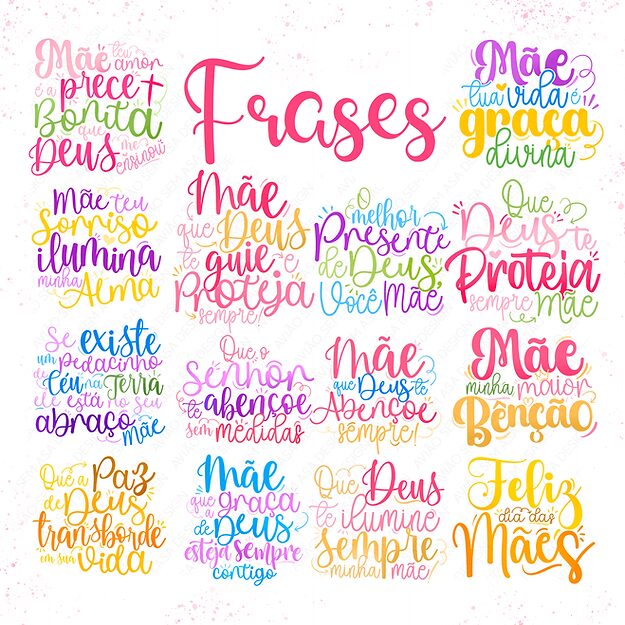 Frases
Mãe teu
amor
é a prece
Bonita
que
Deus me
ensinou
Mãe
tua vida é
graça
divina
Mãe teu
Sorriso
ilumina
minha
Alma
Mãe
que Deus
te guie e
Proteja
sempre!
O melhor
Presente
de Deus,
Você Mãe
Que
Deus te
Proteja
sempre Mãe
Se existe
um pedacinho
de Céu na Terra
ele está no seu
abraço
mãe
Que o
Senhor
te abençoe
sem medidas
Mãe
que Deus te
Abençoe
sempre!
Mãe
minha maior
Bênção
Que a Paz
de Deus
transborde
em sua Vida
Mãe
que a graça
de Deus
esteja sempre
contigo
Que Deus
te ilumine
sempre
minha mãe!
Feliz
dia das
Mães